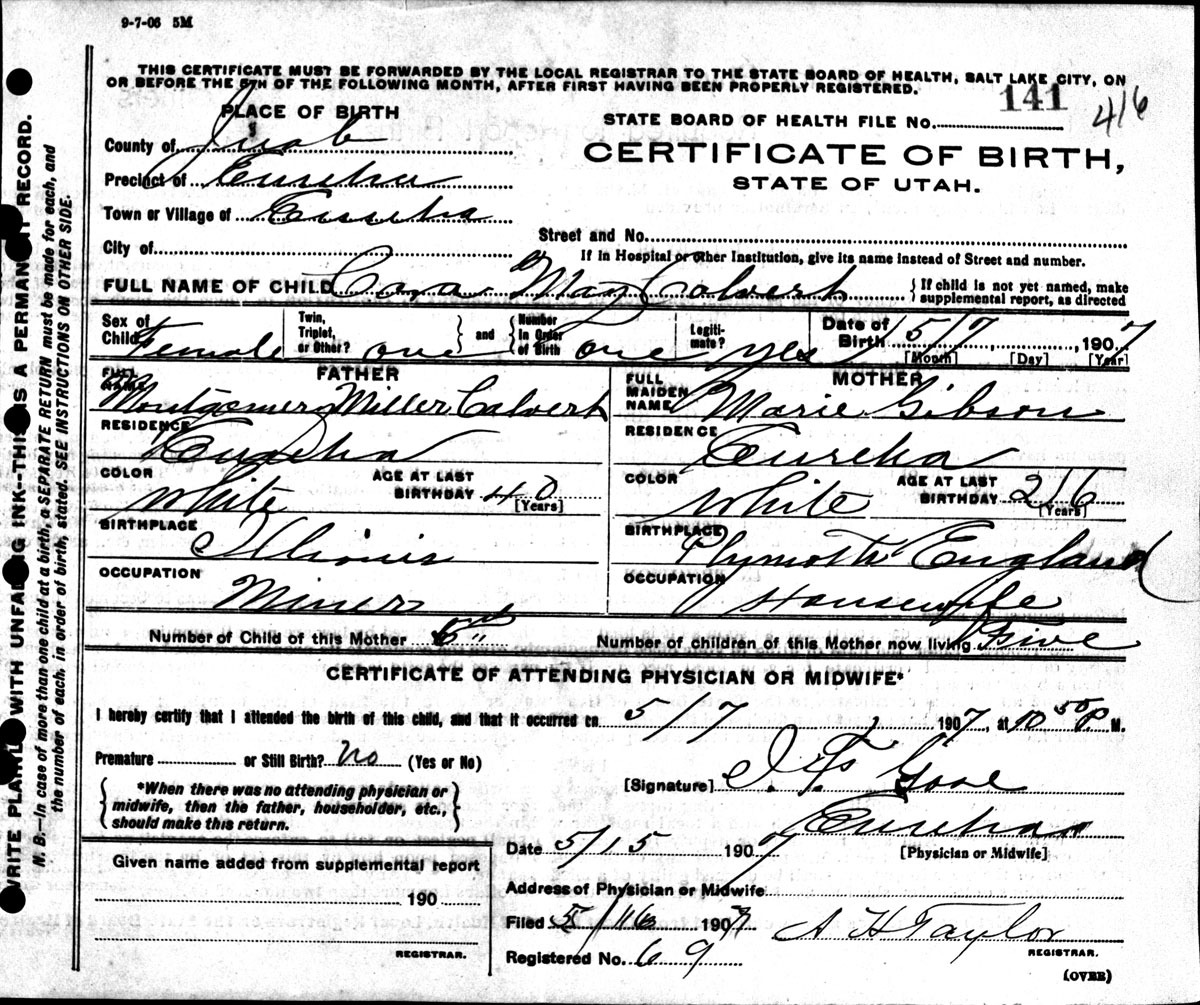 9-7-06 5M
THIS CERTIFICATE MUST BE FORWARDED BY THE LOCAL REGISTRAR TO THE STATE BOARD OF HEALTH, SALT LAKE CITY, ON
OR BEFORE THE 5TH OF THE FOLLOWING MONTH, AFTER FIRST HAVING BEEN PROPERLY REGISTERED.
WRITE PLAINLY WITH UNFADING INK--THIS IS A PERMANENT RECORD.
N. B.--In case of more than one child at a birth, a SEPARATE RETURN must be made for each, and
the number of each, in order of birth, stated. SEE INSTRUCTIONS ON OTHER SIDE.
PLACE OF BIRTH
County of Juab
Precinct of Eureka
Town or Village of Eureka
City of
STATE BOARD OF HEALTH FILE No. 141 416
CERTIFICATE OF BIRTH,
STATE OF UTAH.
Street and No.
If in Hospital or other Institution, give its name instead of Street and number.
FULL NAME OF CHILD Cora May Calvert
If child is not yet named, make
supplemental report, as directed
Sex of Child Female
Twin, Triplet, or Other? one
and
Number in Order of Birth one
Legitimate? yes
Date of Birth 5/7, 1907
[Month] [Day] [Year]
FATHER
FULL NAME Montgomery Miller Calvert
RESIDENCE Eureka
COLOR White
AGE AT LAST BIRTHDAY 40
[Years]
BIRTHPLACE Illinois
OCCUPATION Miner
MOTHER
FULL MAIDEN NAME Marie Gibson
RESIDENCE Eureka
COLOR White
AGE AT LAST BIRTHDAY 26
[Years]
BIRTHPLACE Plymoth England
OCCUPATION Housewife
Number of Child of this Mother
Number of children of this Mother now living Five
CERTIFICATE OF ATTENDING PHYSICIAN OR MIDWIFE*
I hereby certify that I attended the birth of this child, and that it occurred on 5/7, 1907, at 10 50 P. M.
Premature or Still Birth? No (Yes or No)
*When there was no attending physician or
midwife, then the father, householder, etc.,
should make this return.
[Signature]
Eureka
[Physician or Midwife]
Given name added from supplemental report
190
REGISTRAR.
Date 5/15 1907
Address of Physician or Midwife
Filed 5/16 1907 A H Taylor
REGISTRAR.
Registered No. 69
(OVER)